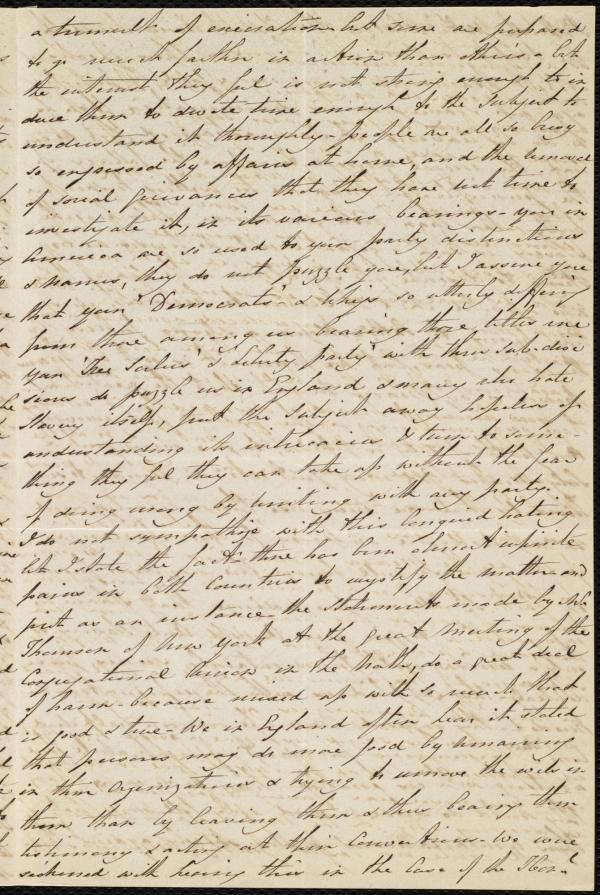 a tumult of execration but some are prepared
to go much farther in action than others - but
the interest they feel is not strong enough to in
duce them to devote time enough to the subject to
understand it thoroughly - people are all so busy
so engrossed by affairs at home, and the removal
of social grievances that they have not time to
investigate it, in its various bearings - you in
America are so used to your party distinctions
& names, they do not puzzle you, but I assure you
that your "Democrats" & Whigs so utterly differing
from those among us bearing those titles and
your 'Free Soilers' & 'Liberty party' with their sub-divi
sions do puzzle us in England & many who hate
Slavery itself, put the subject away hopeless of
understanding its intricacies & turn to some-
thing they feel they can take up without the fear
of doing wrong by uniting with any party.
I do not sympathize with this languid hating
but I state the fact - there has been almost infinite
pains in both Countries to mystify the matter and
just as an instance - the statements made by Mr.
Thomson of New York at the great meeting of the
Congregational Union in the North, do a great deal
of harm - because mixed up with so much that
is good & true - We in England often hear it stated
that persons may do more good by remaining
in their organizations & trying to remove the evils in
them than by leaving them & thus bearing their
testimony & acting out their Convictions - We were
sickened with hearing this in the Case of the Hon.